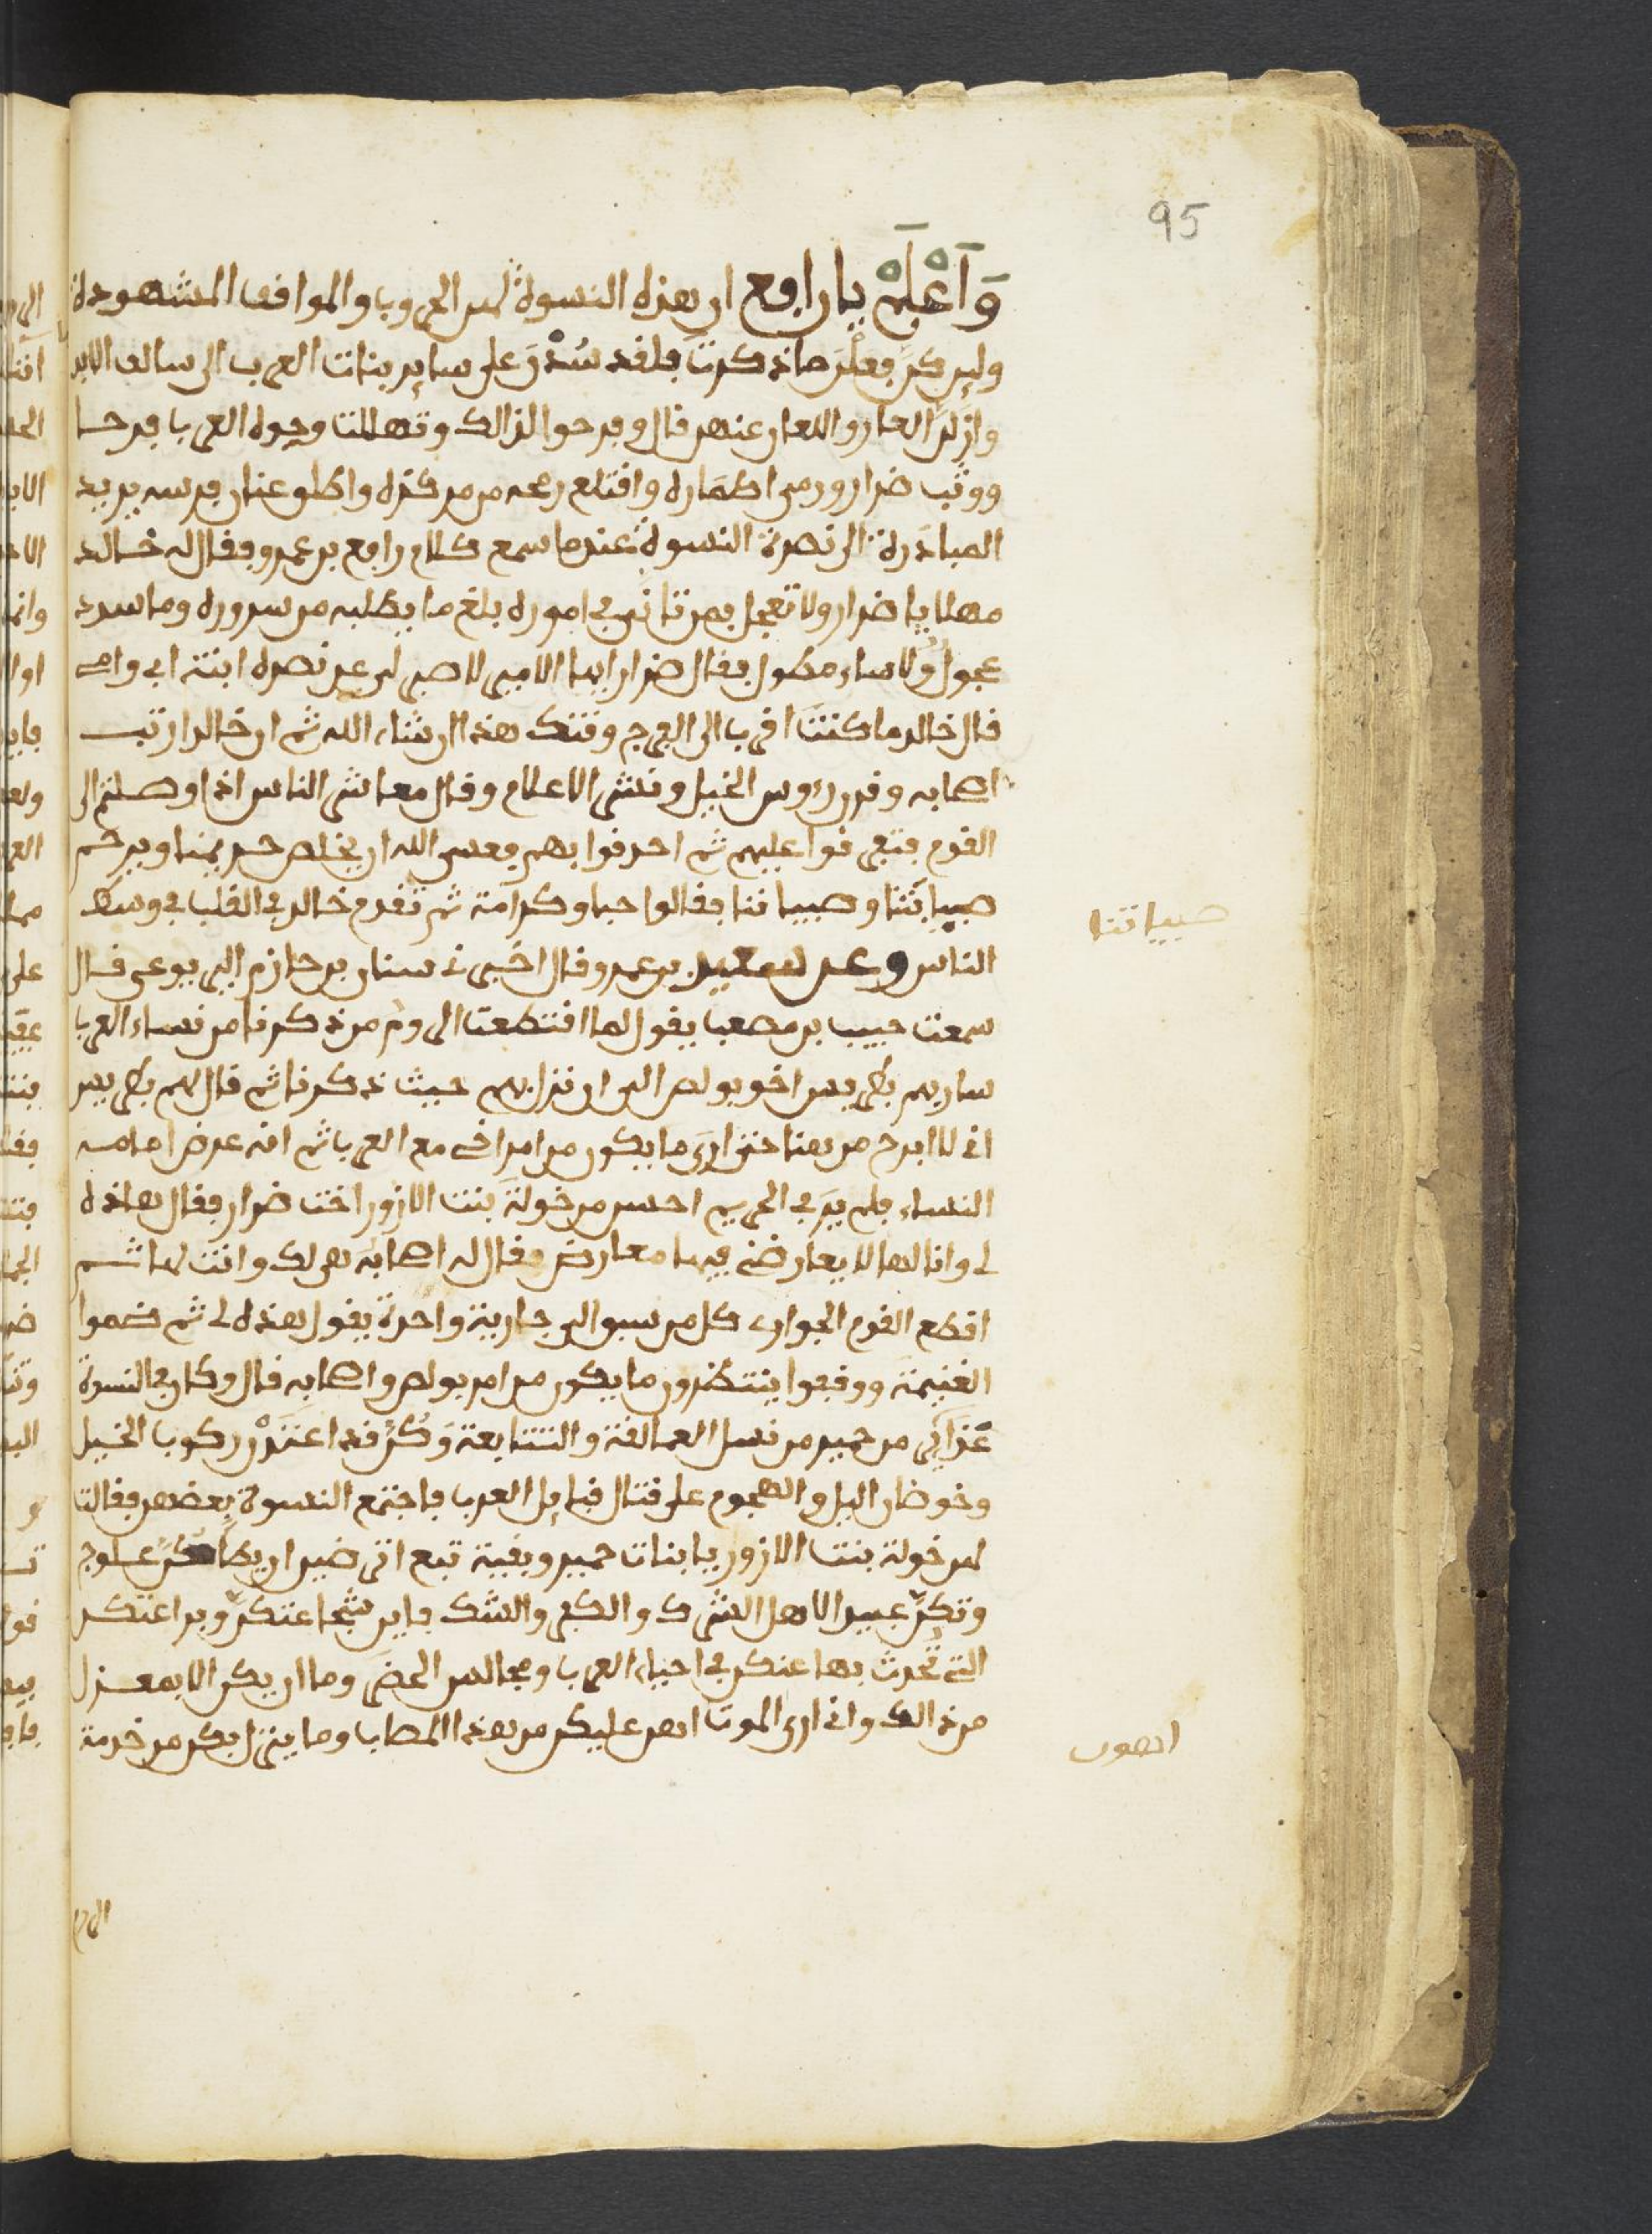 95
وَاَعْلَمْ يا رافع ان هذه النسوة لهن الحروب والمواقف المشهودة
ولين كنّ فعلن ما ذكرت فلقد سُدْنَ على ساير بنات العرب الى سالف الابد
وازلن العار والعار عنهن قال وفرحوا لذالك وتهللت وجوه العرب فرحا
ووثب ضرار ورمى اطماره واقتلع رمحه من مركزه واطلق عنان فرسه يريد
المبادرة الى نصرة النسوة عندما سمع كلام رافع بن عمرو فقال له خالد
مهلا يا ضرار ولا تعجل فمن تانى في اموره بلغ ما يطلبه من سروره وما سدد
عجول ولا ساد مطول فقال ضرار ايها الامير لا صبر لي عن نصرة ابنة ابي وامي
قال خالد ما كنت اقرب الى الفرج وقتك هذا ان شاء الله ثم ان خالدا رتب
اصحابه وفرن رءوس الخيل ونشر الاعلام وقال معاشر الناس اذا وصلتم الى
القوم فتفرقوا عليهم ثم احدقوا بهم فعسى الله ان يخلص حريمنا ويرحم
صبياتنا وصبياننا فقالوا حبا وكرامة ثم تقدم خالد في القلب في وسط
صبياتنا
الناس وعن سعيد بن عمرو قال اخبرني سنان بن حازم اليربوعي قال
سمعت حبيب بن مصعب يقول لما اقتطعت الروم من ذكرنا من نساء العرب
سار بهم بطرس اخو بولص الى ان نزل بهم حيث ذكرنا ثم قال لهم بطرس
اني لا ابرح من هنا حتى ارى ما يكون من امر اخي مع العرب ثم انه عرض امامه
النساء فلم يَرَ في الحريم احسن من خولة بنت الازور اخت ضرار فقال هاذه
لي وانا لها لا يعارضني فيها معارض فقال له اصحابه هي لك وانت لها ثم
اقطع القوم الجواري كل من سبق الى جارية واحدة يقول هذه لي ثم ضموا
الغنيمة ووقفوا ينتظرون ما يكون من امر بولص واصحابه قال وكان في النسوة
عذارى من حمير من نسل العمالقة والتتابعة وَكُنَّ قد اعتدْن ركوب الخيل
وخوضان اليل والهجوم على قتال قبايل العرب فاجتمع النسوة بعضهن فقالت
لهن خولة بنت الازور يا بنات حمير وبقية تبع اترضين ان يطأكنّ علوج
وتكنّ عبيدا لاهل الشرك والكفر والشك فاين شجاعتكنّ وبراعتكن
التي تحدث بها عنكن في احياء العرب ومجالس الحضر وما اريكن الا بمعزل
من ذالك واني ارى الموت اهون عليكن من هذا المصاب وما ينزل بكن من خدمة
اهون
الروم